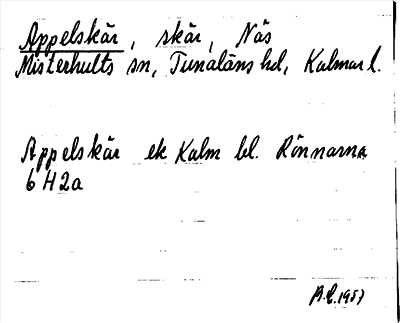 Appelskär, skär, Näs
Misterhults sn, Tunaläns hd, Kalmar l.
Appelskär ek Kalm bl. Rönnarna
6 H 2a
1957